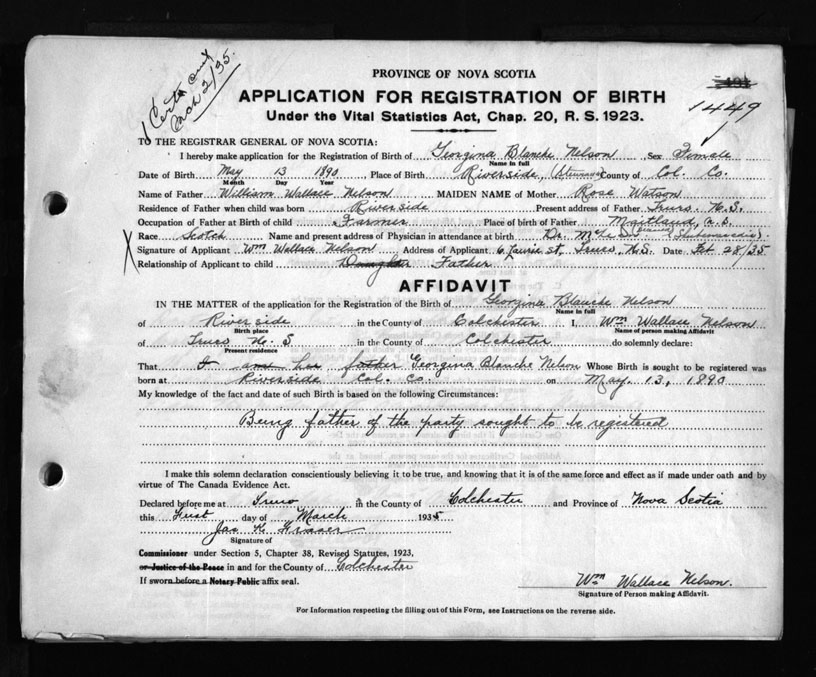 Certx out
Mch 2/35.
PROVINCE OF NOVA SCOTIA
APPLICATION FOR REGISTRATION OF BIRTH
1449
Under the Vital Statistics Act, Chap. 20, R. S. 1923.
TO THE REGISTRAR GENERAL OF NOVA SCOTIA:
I hereby make application for the Registration of Birth of Georgina Blanche Nelson Sex Female
Name in full
Date of Birth May 13 1890 Place of Birth Riverside, County of Col. Co.
Month Day Year
Name of Father William Wallace Nelson MAIDEN NAME of Mother Rose Watson
Residence of Father when child was born Riverside Present address of Father Truro N.S.
Occupation of Father at Birth of child Farmer Place of birth of Father Maitland,
Race Scotch Name and present address of Physician in attendance at birth Dr. (Shubenacadie).
X Signature of Applicant Wm Wallace Nelson Address of Applicant 6 St. Truro, N.S. Date Feb 28/35
Relationship of Applicant to child Daughter Father
AFFIDAVIT
IN THE MATTER of the application for the Registration of the Birth of Georgina Blanche Nelson
Name in full
of Riverside in the County of Colchester I, Wm Wallace Nelson
Birth place Name of person making Affidavit
of Truro N. S in the County of Colchester do solemnly declare:
Present residence
That I am her father Georgina Blanche Nelson Whose Birth is sought to be registered was
born at Riverside Col. Co. on May. 13, 1890
My knowledge of the fact and date of such Birth is based on the following Circumstances:
Being father of the party sought to be registered
I make this solemn declaration conscientiously believing it to be true, and knowing that it is of the same force and effect as if made under oath and by
virtue of The Canada Evidence Act.
Declared before me at Truro in the County of Colchester and Province of Nova Scotia
this First day of March 1935
Jas K Fraser
Signature of
Commissioner under Section 5, Chapter 38, Revised Statutes, 1923,
or Justice of the Peace in and for the County of Colchester
If sworn before a Notary Public affix seal.
Wm Wallace Nelson.
Signature of Person making Affidavit.
For Information respecting the filling out of this Form, see Instructions on the reverse side.